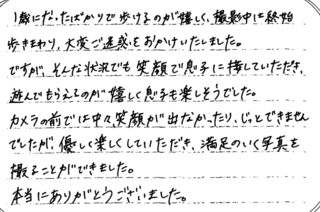 1歳になったばかりで歩けるのが嬉しく、撮影中は終始
歩きまわり、大変ご迷惑をおかけいたしました。
ですが、そんな状況でも笑顔で息子に接していただき、
遊んでもらえるのが嬉しく息子も楽しそうでした。
カメラの前では中々笑顔が出なかったり、じっとできません
でしたが、優しく楽しくしていただき、満足のいく写真を
撮ることができました。
本当にありがとうございました。